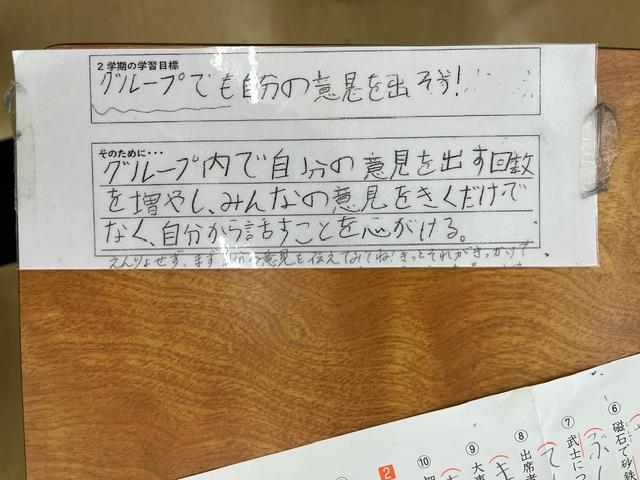 2学期の学習目標
グループでも自分の意見を出そう!
そのために・・・
グループ内で自分の意見を出す回数
を増やし、みんなの意見をきくだけで
なく、自分から話すことを心がける。
えんりょせず、まず自分の意見を伝えてみてね!きっとそれがきっかけで
⑥ 磁石で砂鉄
⑦ 武士につ
⑧ 出席者
⑨ 大事
⑩
2